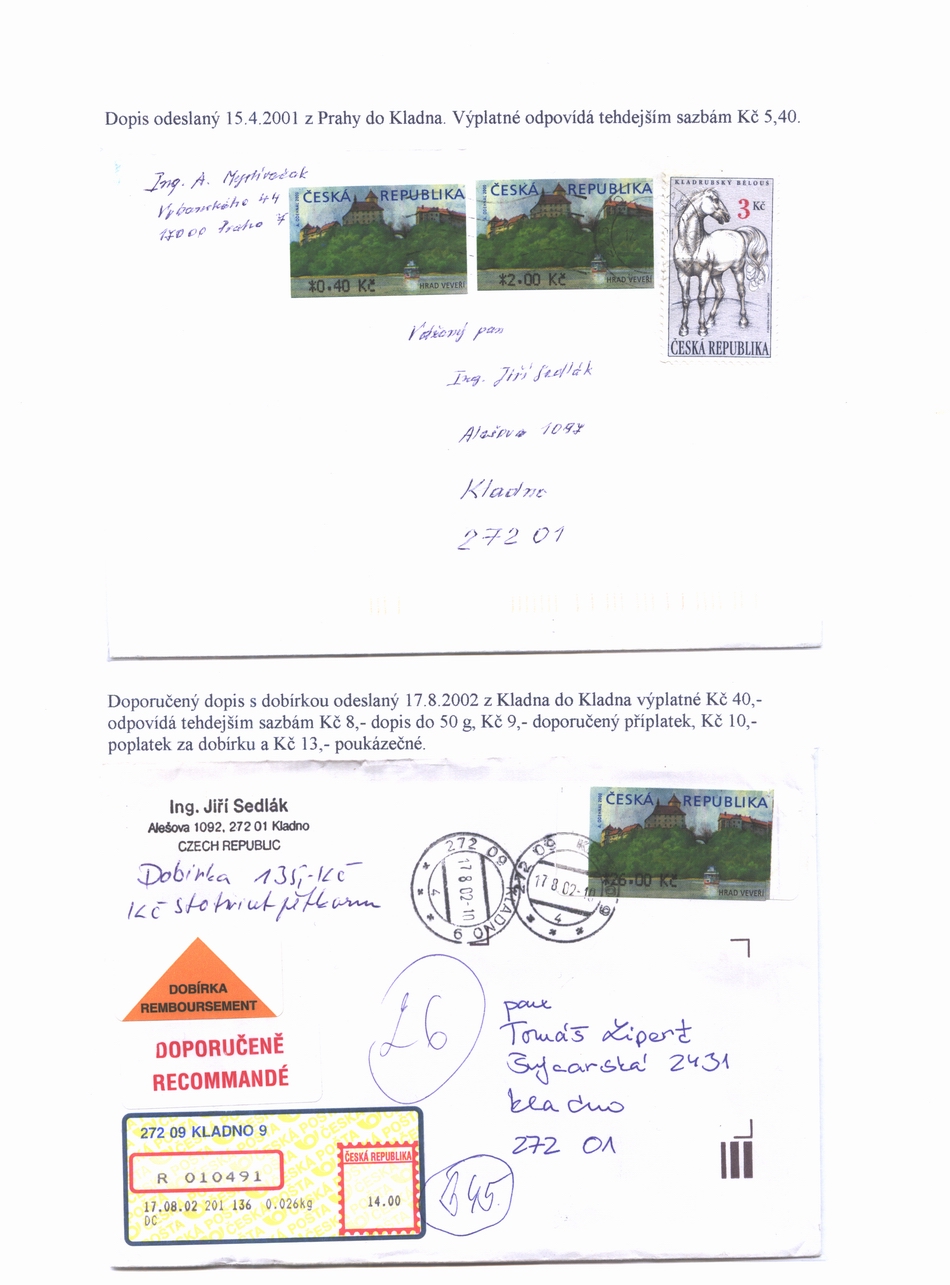 Dopis odeslaný 15.4.2001 z Prahy do Kladna. Výplatné odpovídá tehdejším sazbám Kč 5,40.
Ing. A.
44
17000 Praha 7
ČESKÁ REPUBLIKA
*0.40 Kč
HRAD VEVEŘÍ
ČESKÁ REPUBLIKA
*2.00 Kč
HRAD VEVEŘÍ
KLADRUBSKÝ BĚLOUŠ
3 Kč
ČESKÁ REPUBLIKA
Vážený pan
Ing. Jiří Sedlák
Alešova 1092
Kladno
272 01
Doporučený dopis s dobírkou odeslaný 17.8.2002 z Kladna do Kladna výplatné Kč 40,-
odpovídá tehdejším sazbám Kč 8,- dopis do 50 g, Kč 9,- doporučený příplatek, Kč 10,-
poplatek za dobírku a Kč 13,- poukázečné.
Ing. Jiří Sedlák
Alešova 1092, 272 01 Kladno
CZECH REPUBLIC
Dobírka 135,-Kč
Kč stotřicetpětkorun
272 09 KLADNO 9
17 8 02-10
4
272 09
17 8 02-10
4
ČESKÁ REPUBLIKA
*26.00 Kč
HRAD VEVEŘÍ
DOBÍRKA
REMBOURSEMENT
DOPORUČENĚ
RECOMMANDÉ
26
pan
Tomáš Lipert
Švýcarská 2431
Kladno
272 01
272 09 KLADNO 9
R 010491
17.08.02 201 136 0.026kg
DC
ČESKÁ REPUBLIKA
14.00